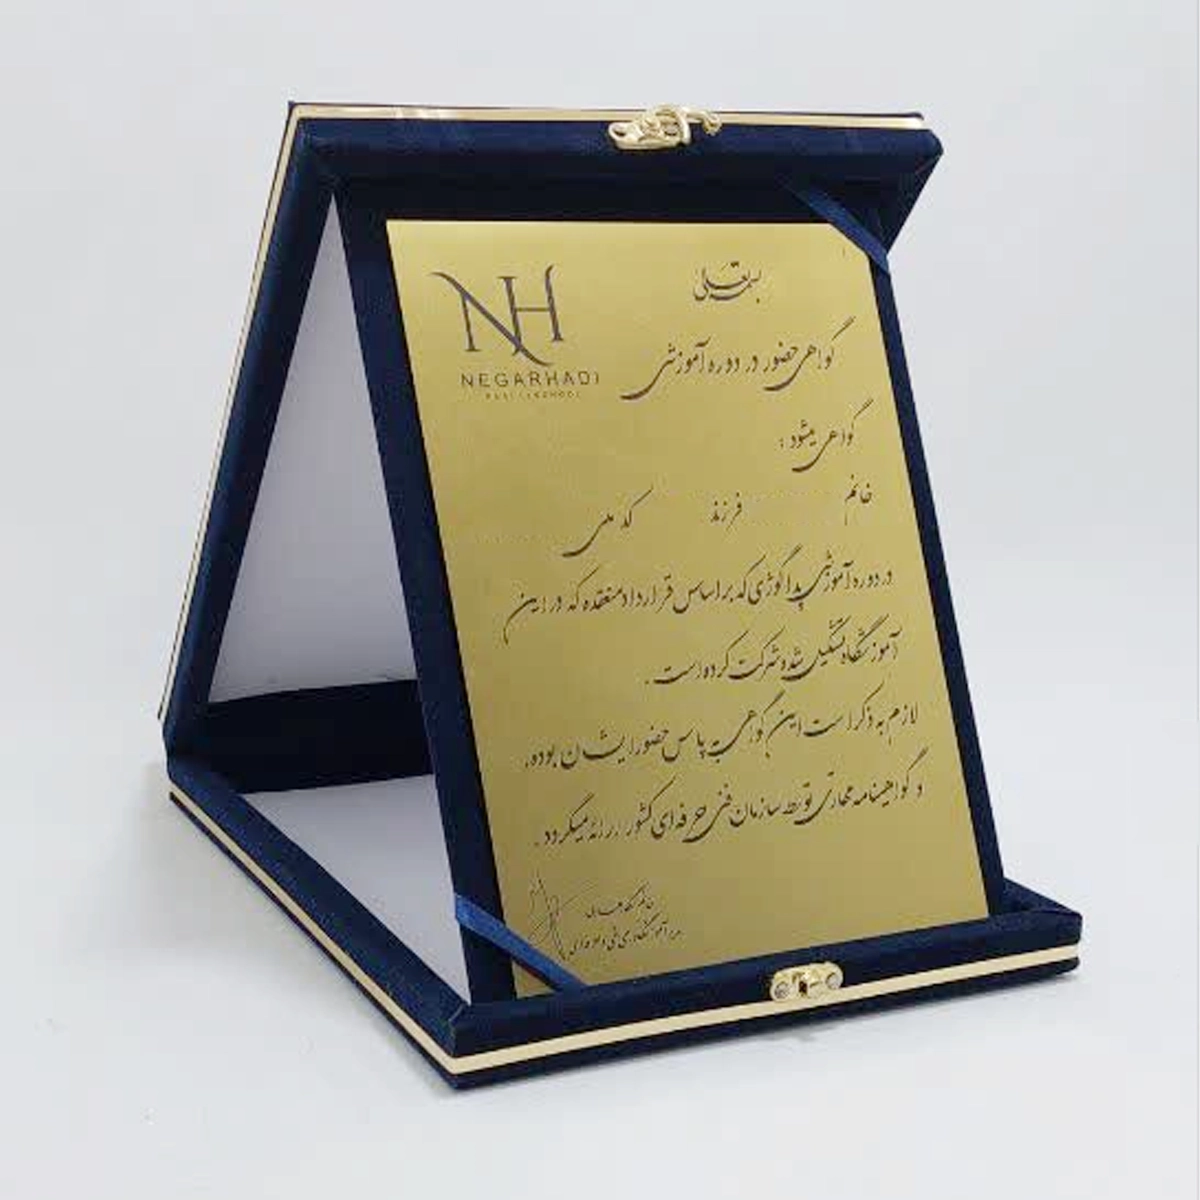 بسمه تعالی
NH
NEGARHADI
گواهی حضور در دوره آموزشی
گواهی میشود :
خانم فرزند کد ملی
در دوره آموزشی پداگوژی که بر اساس قرارداد منعقده که در این
آموزشگاه تشکیل شده شرکت کرده است .
لازم به ذکر است این گواهی به پاس حضور ایشان بوده،
و گواهینامه مهارتی توسط سازمان فنی حرفه ای کشور ارائه میگردد .